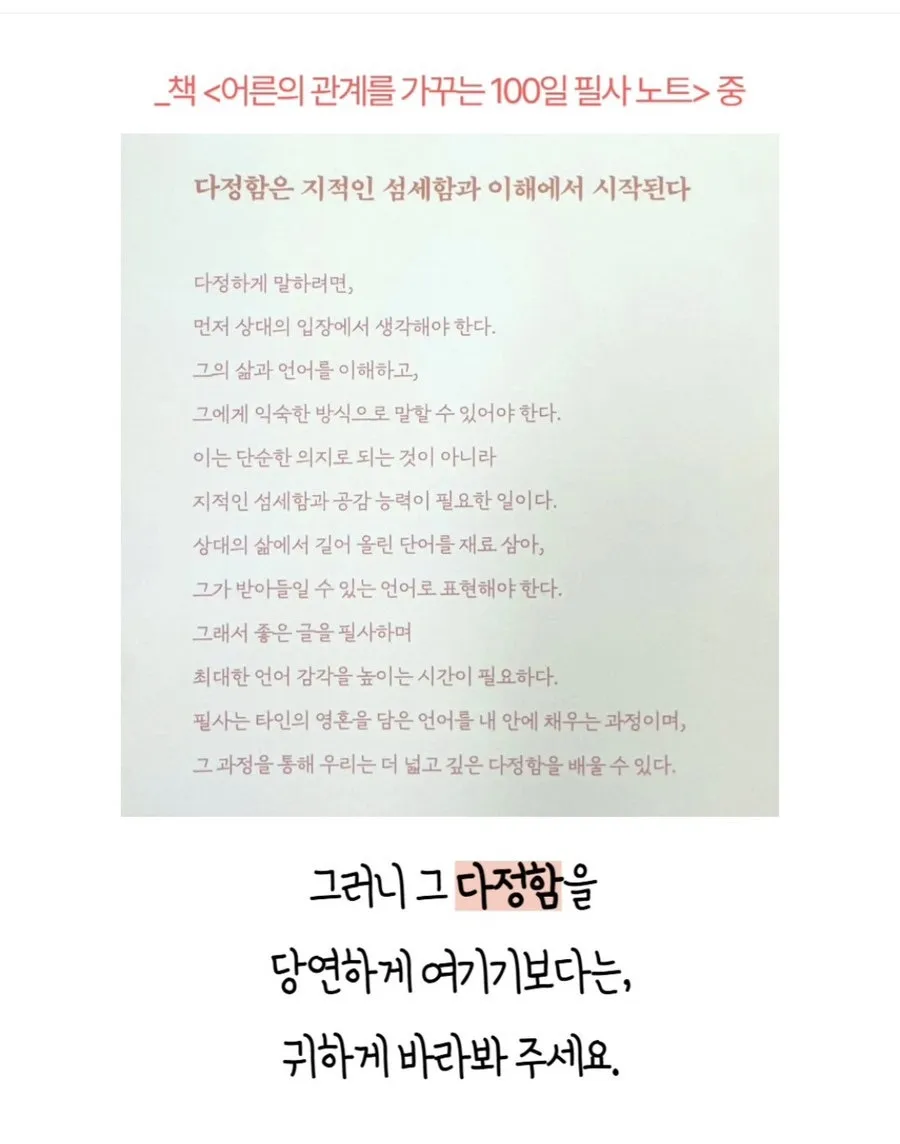 _책 <어른의 관계를 가꾸는 100일 필사 노트> 중
다정함은 지적인 섬세함과 이해에서 시작된다
다정하게 말하려면,
먼저 상대의 입장에서 생각해야 한다.
그의 삶과 언어를 이해하고,
그에게 익숙한 방식으로 말할 수 있어야 한다.
이는 단순한 의지로 되는 것이 아니라
지적인 섬세함과 공감 능력이 필요한 일이다.
상대의 삶에서 길어 올린 단어를 재료 삼아,
그가 받아들일 수 있는 언어로 표현해야 한다.
그래서 좋은 글을 필사하며
최대한 언어 감각을 높이는 시간이 필요하다.
필사는 타인의 영혼을 담은 언어를 내 안에 채우는 과정이며,
그 과정을 통해 우리는 더 넓고 깊은 다정함을 배울 수 있다.
그러니 그 다정함을
당연하게 여기기보다는,
귀하게 바라봐 주세요.